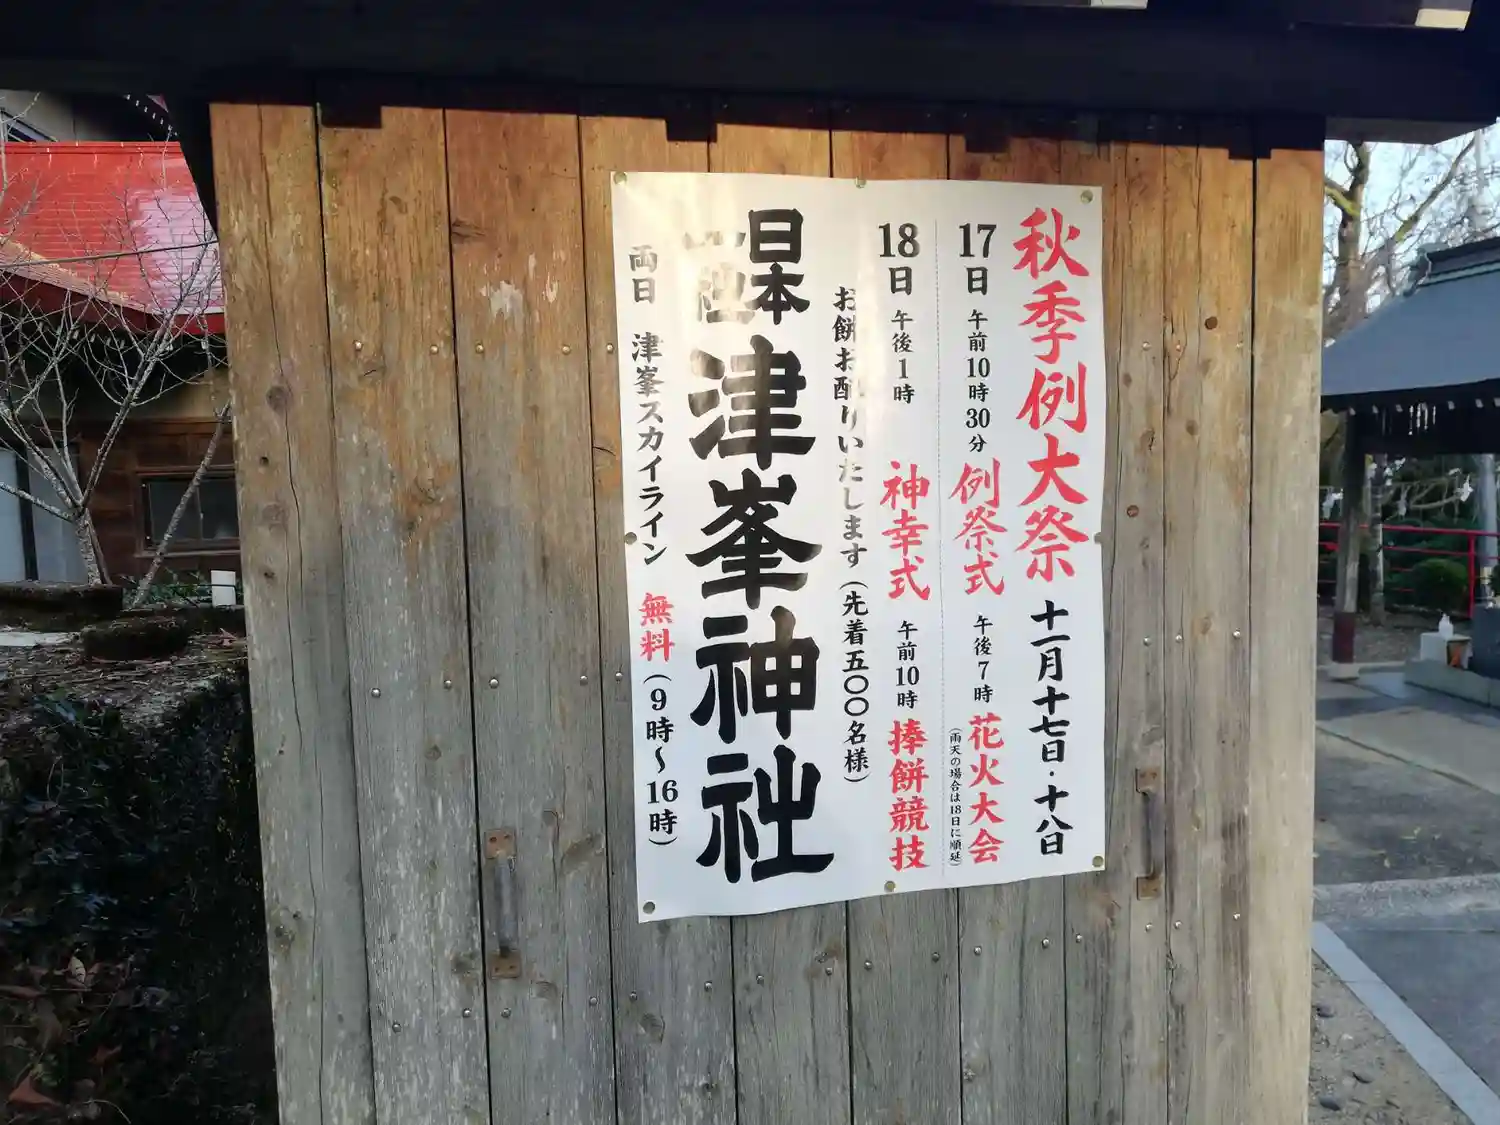 秋季例大祭 十一月十七日・十八日
17日 午前10時30分 例祭式 午後7時 花火大会
(雨天の場合は18日に順延)
18日 午後1時 神幸式 午前10時 捧餅競技
お餅お配りいたします(先着五〇〇名様)
日本
津峯神社
両日 津峯スカイライン 無料(9時～16時)